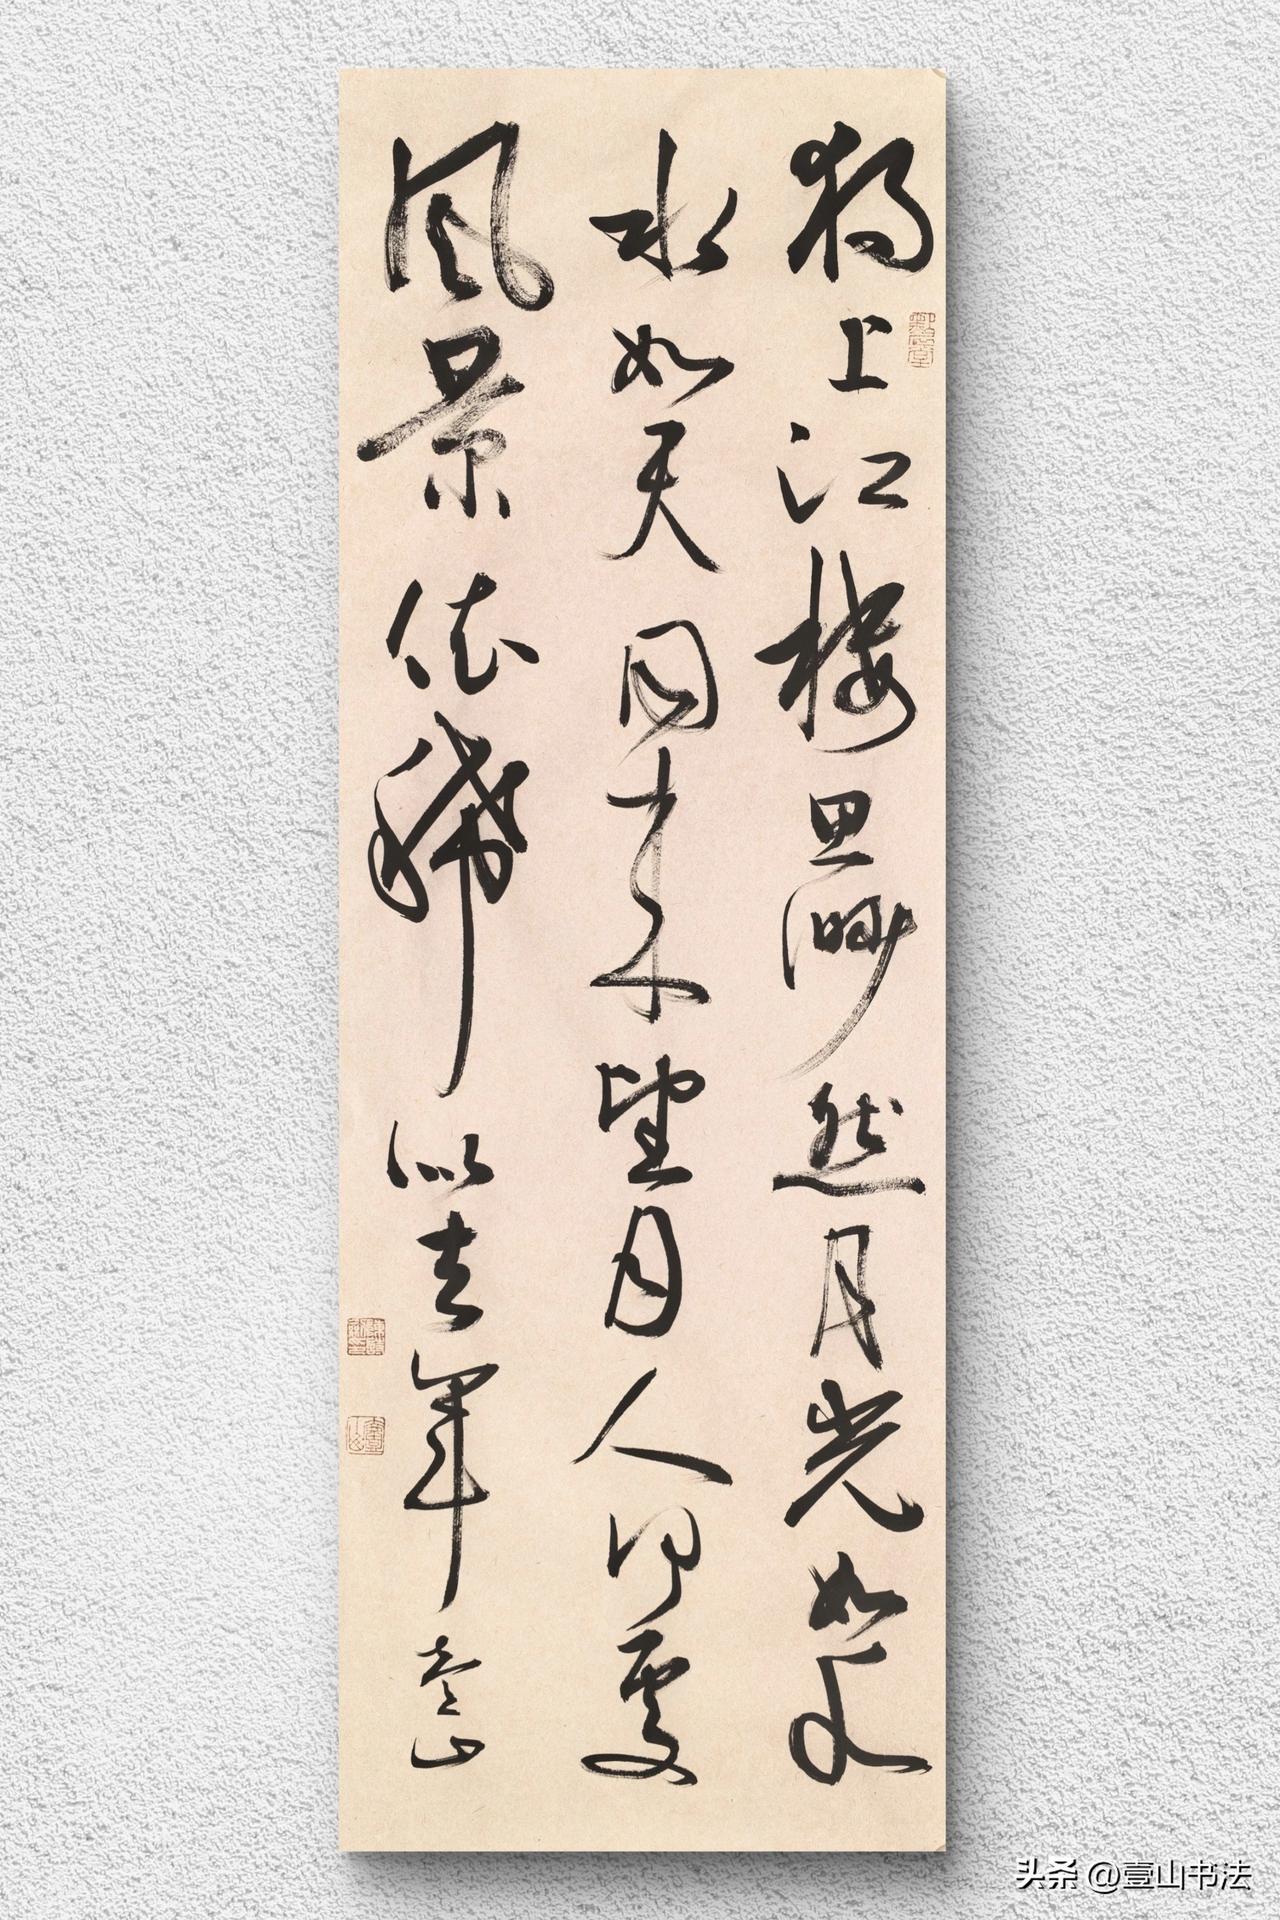 獨上江樓思渺然月光如水
水如天同來望月人何處
風景依稀似去年 壹山
头条 @壹山书法